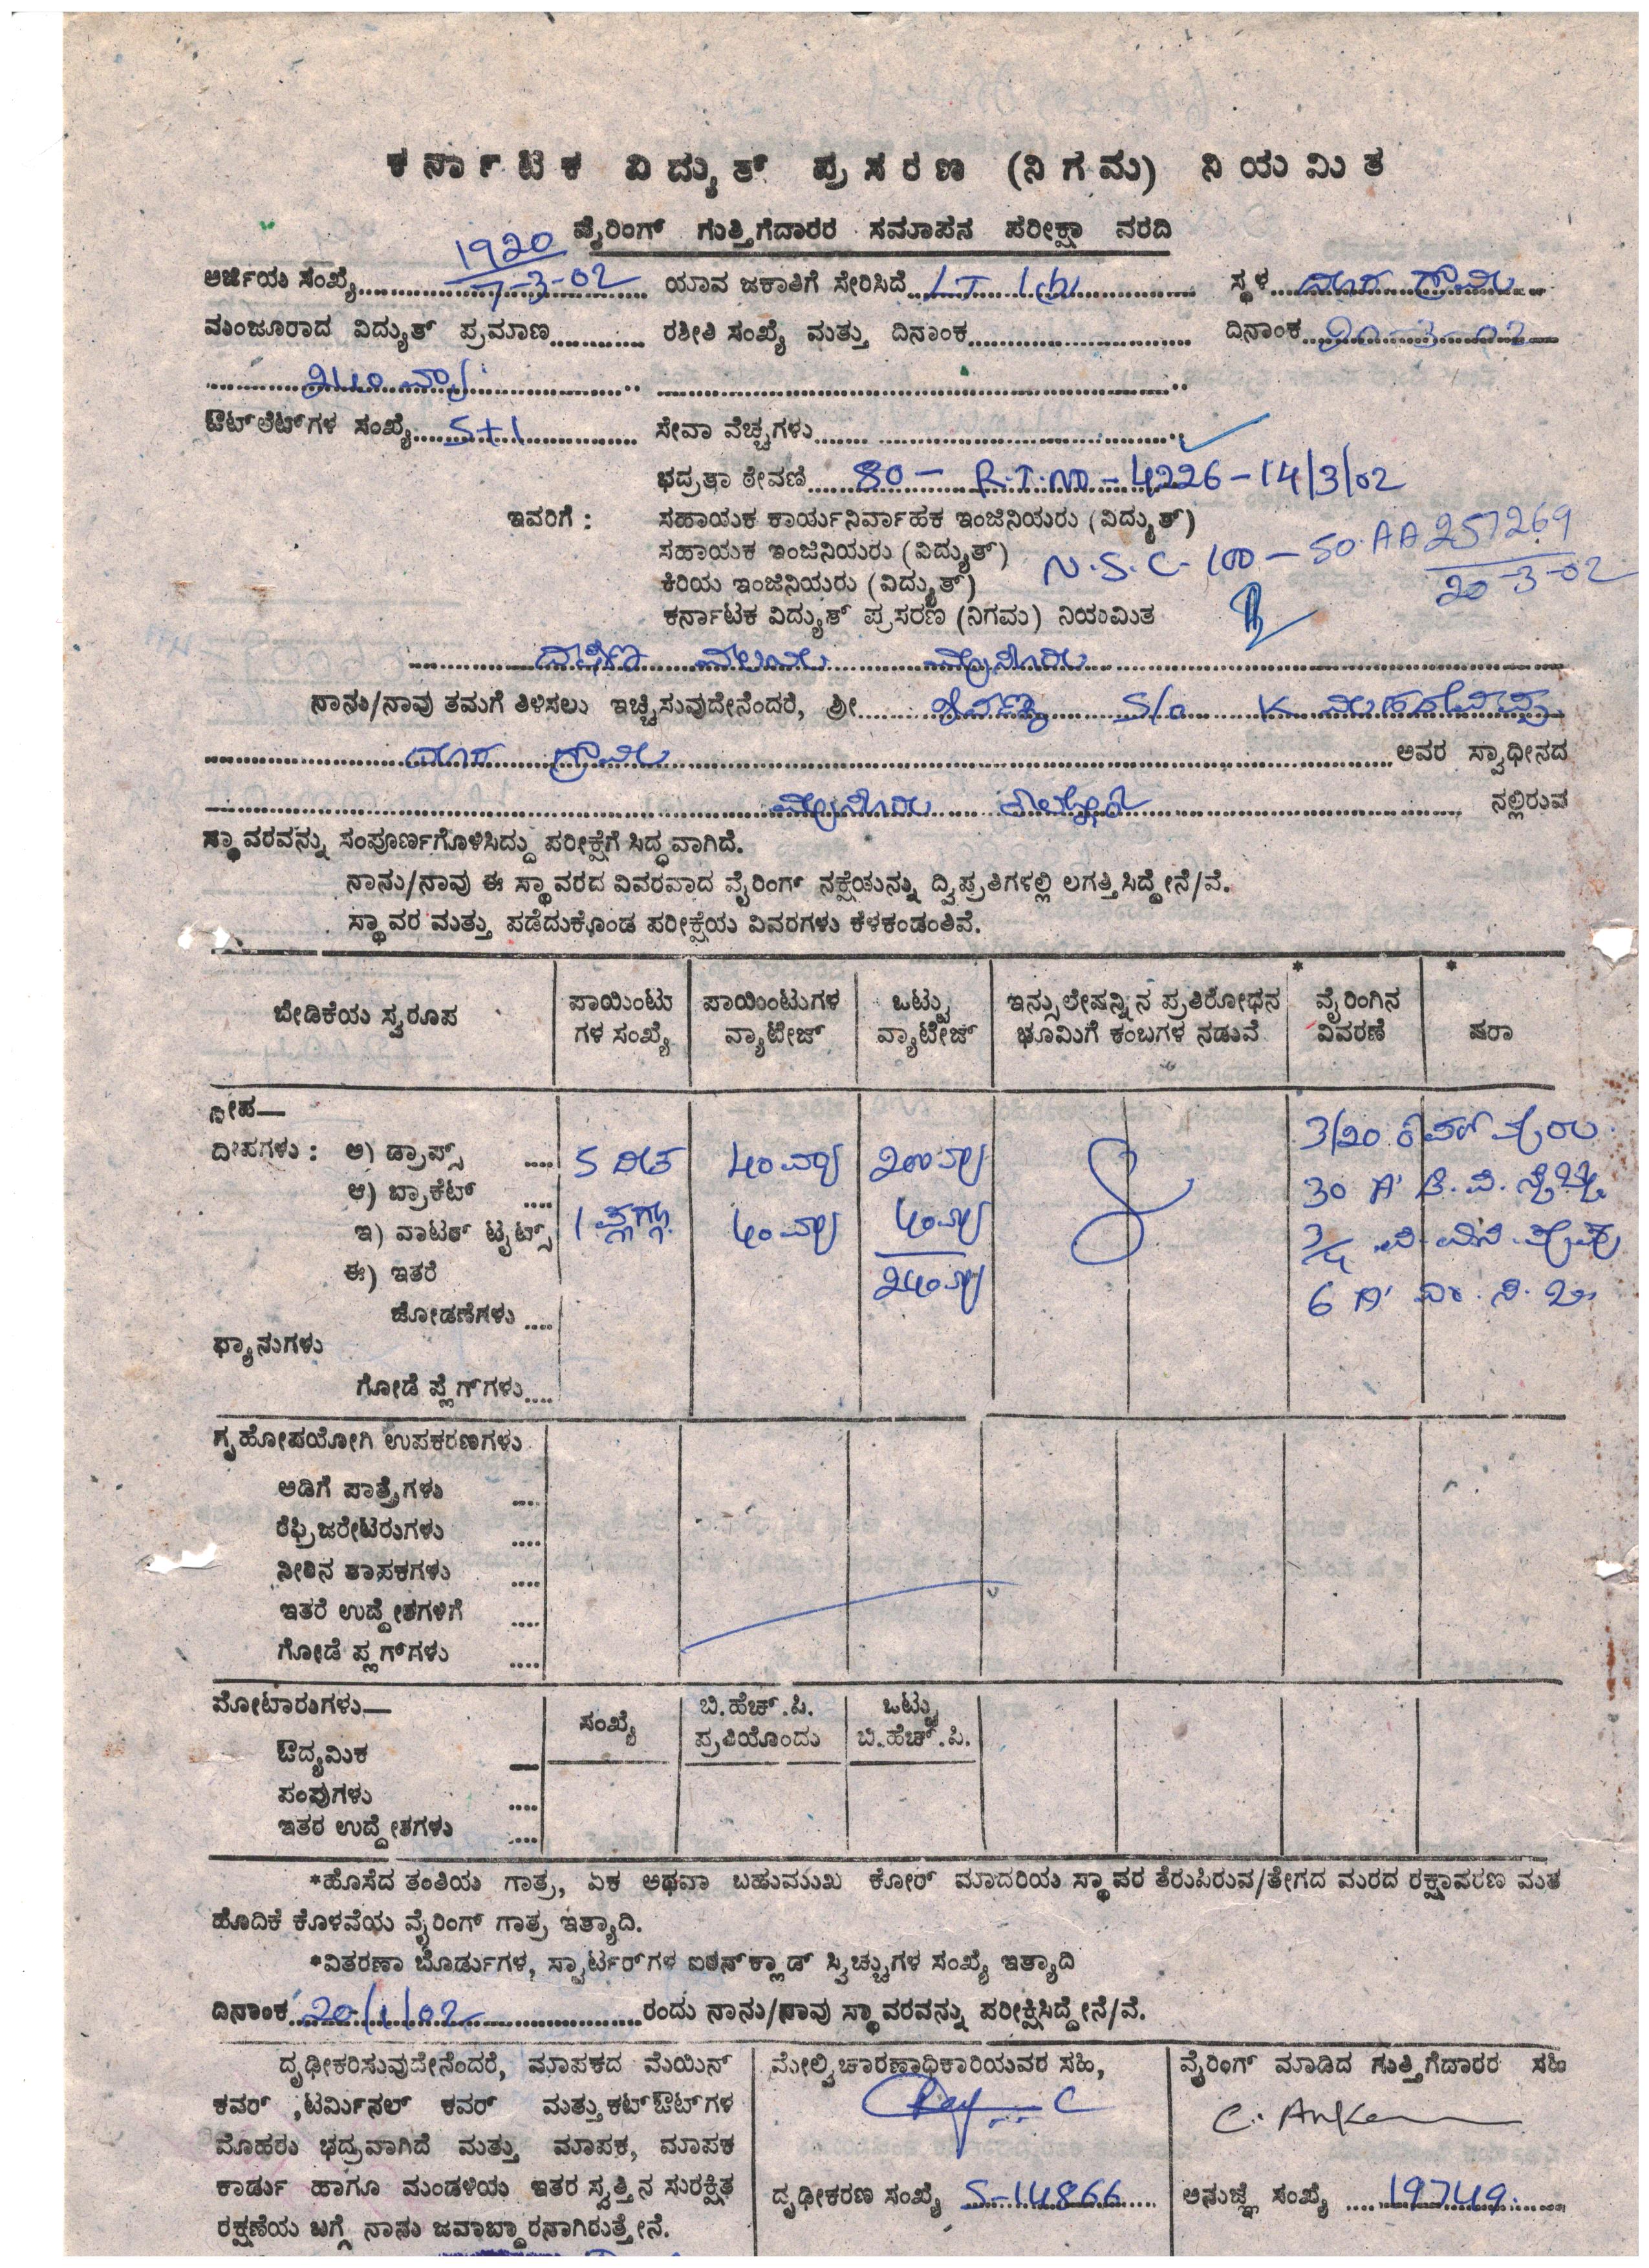 ಕರ್ನಾಟಕ ವಿದ್ಯುತ್ ಪ್ರಸರಣ (ನಿಗಮ) ನಿಯಮಿತ
ವೈರಿಂಗ್ ಗುತ್ತಿಗೆದಾರರ ಸಮಾಪನ ಪರೀಕ್ಷಾ ವರದಿ
1920
ಅರ್ಜಿಯ ಸಂಖ್ಯೆ 7-3-02 ಯಾವ ಜಕಾತಿಗೆ ಸೇರಿಸಿದೆ LT ಸ್ಥಳ
ಮಂಜೂರಾದ ವಿದ್ಯುತ್ ಪ್ರಮಾಣ ರಶೀತಿ ಸಂಖ್ಯೆ ಮತ್ತು ದಿನಾಂಕ ದಿನಾಂಕ 20-3-02
240 ವ್ಯಾ
ಔಟ್‌ಲೆಟ್‌ಗಳ ಸಂಖ್ಯೆ 5+1 ಸೇವಾ ವೆಚ್ಚಗಳು
ಭದ್ರತಾ ಠೇವಣಿ 80 — R.T.NO - 4226 - 14/3/02
ಇವರಿಗೆ : ಸಹಾಯಕ ಕಾರ್ಯನಿರ್ವಾಹಕ ಇಂಜಿನಿಯರು (ವಿದ್ಯುತ್)
ಸಹಾಯಕ ಇಂಜಿನಿಯರು (ವಿದ್ಯುತ್) N.S.C- 100 — 50. AA 257269
ಕಿರಿಯ ಇಂಜಿನಿಯರು (ವಿದ್ಯುತ್) 20-3-02
ಕರ್ನಾಟಕ ವಿದ್ಯುತ್ ಪ್ರಸರಣ (ನಿಗಮ) ನಿಯಮಿತ
ನಾನು/ನಾವು ತಮಗೆ ತಿಳಿಸಲು ಇಚ್ಚಿಸುವುದೇನೆಂದರೆ, ಶ್ರೀ S/o K
ಅವರ ಸ್ವಾಧೀನದ
ನಲ್ಲಿರುವ
ಸ್ಥಾವರವನ್ನು ಸಂಪೂರ್ಣಗೊಳಿಸಿದ್ದು ಪರೀಕ್ಷೆಗೆ ಸಿದ್ಧವಾಗಿದೆ.
ನಾನು/ನಾವು ಈ ಸ್ಥಾವರದ ವಿವರವಾದ ವೈರಿಂಗ್ ನಕ್ಷೆಯನ್ನು ದ್ವಿಪ್ರತಿಗಳಲ್ಲಿ ಲಗತ್ತಿಸಿದ್ದೇನೆ/ವೆ.
ಸ್ಥಾವರ ಮತ್ತು ಪಡೆದುಕೊಂಡ ಪರೀಕ್ಷೆಯ ವಿವರಗಳು ಕೆಳಕಂಡಂತಿವೆ.
ಬೇಡಿಕೆಯ ಸ್ವರೂಪ ಪಾಯಿಂಟು ಪಾಯಿಂಟುಗಳ ಒಟ್ಟು ಇನ್ಸುಲೇಷನ್ನಿನ ಪ್ರತಿರೋಧನ * ವೈರಿಂಗಿನ * ಷರಾ
ಗಳ ಸಂಖ್ಯೆ ವ್ಯಾಟೇಜ್ ವ್ಯಾಟೇಜ್ ಭೂಮಿಗೆ ಕಂಬಗಳ ನಡುವೆ ವಿವರಣೆ
ದೀಪ—
ದೀಪಗಳು : ಅ) ಡ್ರಾಪ್ಸ್ 5 40 ವ್ಯಾ 200 ವ್ಯಾ 3/20
ಆ) ಬ್ರಾಕೆಟ್ 30 A
ಇ) ವಾಟರ್ ಟೈಟ್ಸ್ 1 ಪ್ಲಗ್ಗು 40 ವ್ಯಾ 40 ವ್ಯಾ 3/4
ಈ) ಇತರೆ 240 ವ್ಯಾ 6 A
ಜೋಡಣೆಗಳು
ಫ್ಯಾನುಗಳು
ಗೋಡೆ ಪ್ಲೆಗ್‌ಗಳು
ಗೃಹೋಪಯೋಗಿ ಉಪಕರಣಗಳು
ಅಡಿಗೆ ಪಾತ್ರೆಗಳು
ರೆಫ್ರಿಜರೇಟರುಗಳು
ನೀರಿನ ತಾಪಕಗಳು
ಇತರೆ ಉದ್ದೇಶಗಳಿಗೆ
ಗೋಡೆ ಪ್ಲಗ್‌ಗಳು
ಮೋಟಾರುಗಳು— ಸಂಖ್ಯೆ ಬಿ.ಹೆಚ್.ಪಿ. ಒಟ್ಟು
ಪ್ರತಿಯೊಂದು ಬಿ.ಹೆಚ್.ಪಿ.
ಔದ್ಯಮಿಕ
ಪಂಪುಗಳು
ಇತರ ಉದ್ದೇಶಗಳು
*ಹೊಸೆದ ತಂತಿಯ ಗಾತ್ರ, ಏಕ ಅಥವಾ ಬಹುಮುಖ ಕೋರ್ ಮಾದರಿಯ ಸ್ಥಾವರ ತೆರುಪಿರುವ/ತೇಗದ ಮರದ ರಕ್ಷಾವರಣ ಮತ
ಹೊದಿಕೆ ಕೊಳವೆಯ ವೈರಿಂಗ್ ಗಾತ್ರ ಇತ್ಯಾದಿ.
*ವಿತರಣಾ ಬೋರ್ಡುಗಳ, ಸ್ಟಾರ್ಟರ್‌ಗಳ ಐರನ್‌ಕ್ಲಾಡ್ ಸ್ವಿಚ್ಚುಗಳ ಸಂಖ್ಯೆ ಇತ್ಯಾದಿ
ದಿನಾಂಕ 20/1/02 ರಂದು ನಾನು/ನಾವು ಸ್ಥಾವರವನ್ನು ಪರೀಕ್ಷಿಸಿದ್ದೇನೆ/ವೆ.
ದೃಢೀಕರಿಸುವುದೇನೆಂದರೆ, ಮಾಪಕದ ಮೆಯಿನ್ ಮೇಲ್ವಿಚಾರಣಾಧಿಕಾರಿಯವರ ಸಹಿ, ವೈರಿಂಗ್ ಮಾಡಿದ ಗುತ್ತಿಗೆದಾರರ ಸಹಿ
ಕವರ್ ,ಟರ್ಮಿನಲ್ ಕವರ್ ಮತ್ತು ಕಟ್‌ಔಟ್‌ಗಳ
ಮೊಹರು ಭದ್ರವಾಗಿದೆ ಮತ್ತು ಮಾಪಕ, ಮಾಪಕ
ಕಾರ್ಡು ಹಾಗೂ ಮಂಡಳಿಯ ಇತರ ಸ್ವತ್ತಿನ ಸುರಕ್ಷಿತ ದೃಢೀಕರಣ ಸಂಖ್ಯೆ S-14866 ಅನುಜ್ಞೆ ಸಂಖ್ಯೆ 19749
ರಕ್ಷಣೆಯ ಬಗ್ಗೆ ನಾನು ಜವಾಬ್ದಾರನಾಗಿರುತ್ತೇನೆ.